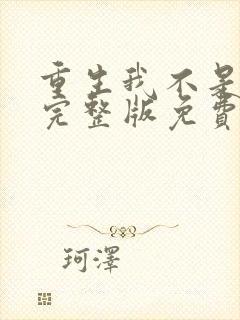 重生我不是
完整版免費
珂澤